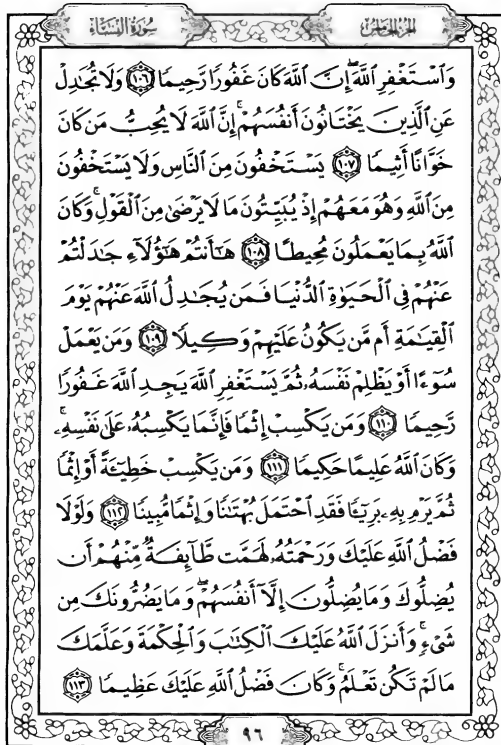 الجزء الخامس
سورة النساء
وَٱسْتَغْفِرِ ٱللَّهَ إِنَّ ٱللَّهَ كَانَ غَفُورًا رَّحِيمًا ١٠٦ وَلَا تُجَٰدِلْ
عَنِ ٱلَّذِينَ يَخْتَانُونَ أَنفُسَهُمْ إِنَّ ٱللَّهَ لَا يُحِبُّ مَن كَانَ
خَوَّانًا أَثِيمًا ١٠٧ يَسْتَخْفُونَ مِنَ ٱلنَّاسِ وَلَا يَسْتَخْفُونَ
مِنَ ٱللَّهِ وَهُوَ مَعَهُمْ إِذْ يُبَيِّتُونَ مَا لَا يَرْضَىٰ مِنَ ٱلْقَوْلِ وَكَانَ
ٱللَّهُ بِمَا يَعْمَلُونَ مُحِيطًا ١٠٨ هَٰٓأَنتُمْ هَٰٓؤُلَآءِ جَٰدَلْتُمْ
عَنْهُمْ فِى ٱلْحَيَوٰةِ ٱلدُّنْيَا فَمَن يُجَٰدِلُ ٱللَّهَ عَنْهُمْ يَوْمَ
ٱلْقِيَٰمَةِ أَم مَّن يَكُونُ عَلَيْهِمْ وَكِيلًا ١٠٩ وَمَن يَعْمَلْ
سُوٓءًا أَوْ يَظْلِمْ نَفْسَهُۥ ثُمَّ يَسْتَغْفِرِ ٱللَّهَ يَجِدِ ٱللَّهَ غَفُورًا
رَّحِيمًا ١١٠ وَمَن يَكْسِبْ إِثْمًا فَإِنَّمَا يَكْسِبُهُۥ عَلَىٰ نَفْسِهِۦ
وَكَانَ ٱللَّهُ عَلِيمًا حَكِيمًا ١١١ وَمَن يَكْسِبْ خَطِيٓـَٔةً أَوْ إِثْمًا
ثُمَّ يَرْمِ بِهِۦ بَرِيٓـًٔا فَقَدِ ٱحْتَمَلَ بُهْتَٰنًا وَإِثْمًا مُّبِينًا ١١٢ وَلَوْلَا
فَضْلُ ٱللَّهِ عَلَيْكَ وَرَحْمَتُهُۥ لَهَمَّت طَّآئِفَةٌ مِّنْهُمْ أَن
يُضِلُّوكَ وَمَا يُضِلُّونَ إِلَّآ أَنفُسَهُمْ وَمَا يَضُرُّونَكَ مِن
شَىْءٍ وَأَنزَلَ ٱللَّهُ عَلَيْكَ ٱلْكِتَٰبَ وَٱلْحِكْمَةَ وَعَلَّمَكَ
مَا لَمْ تَكُن تَعْلَمُ وَكَانَ فَضْلُ ٱللَّهِ عَلَيْكَ عَظِيمًا ١١٣
٩٦